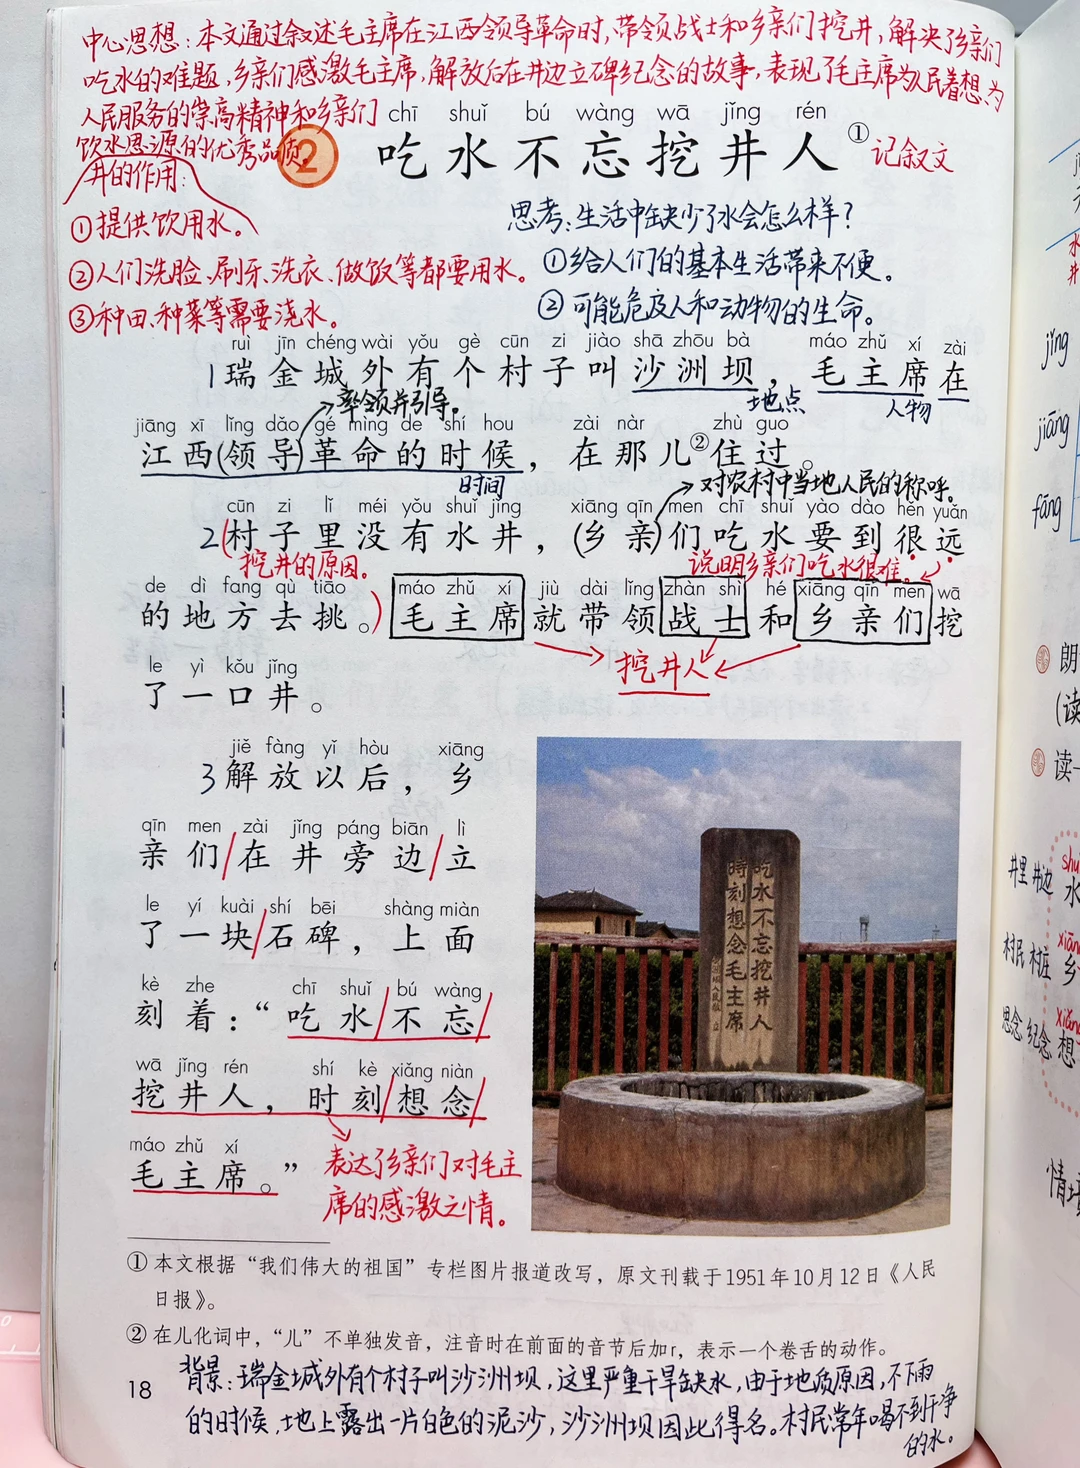 中心思想:本文通过叙述毛主席在江西领导革命时,带领战士和乡亲们挖井,解决了乡亲们
吃水的难题,乡亲们感激毛主席,解放后在井边立碑纪念的故事,表现了毛主席为人民着想、为
人民服务的崇高精神和乡亲们
饮水思源的优秀品质。
chī shuǐ bú wàng wā jǐng rén
2 吃水不忘挖井人①
记叙文
井的作用:
①提供饮用水。
②人们洗脸、刷牙、洗衣、做饭等都要用水。
③种田、种菜等需要浇水。
思考:生活中缺少了水会怎么样?
①给人们的基本生活带来不便。
②可能危及人和动物的生命。
ruì jīn chéng wài yǒu gè cūn zi jiào shā zhōu bà máo zhǔ xí zài
1瑞金城外有个村子叫沙洲坝,毛主席在
地点
人物
率领并引导。
jiāng xī lǐng dǎo gé mìng de shí hou zài nàr zhù guo
江西(领导)革命的时候,在那儿②住过。
时间
对农村中当地人民的称呼。
cūn zi lǐ méi yǒu shuǐ jǐng xiāng qīn men chī shuǐ yào dào hěn yuǎn
2(村子里没有水井,(乡亲)们吃水要到很远
挖井的原因。
说明乡亲们吃水很难。
de dì fang qù tiāo máo zhǔ xí jiù dài lǐng zhàn shì hé xiāng qīn men wā
的地方去挑。)毛主席就带领战士和乡亲们挖
挖井人
le yì kǒu jǐng
了一口井。
jiě fàng yǐ hòu xiāng
3解放以后,乡
qīn men zài jǐng páng biān lì
亲们/在井旁边/立
le yí kuài shí bēi shàng miàn
了一块/石碑,上面
kè zhe chī shuǐ bú wàng
刻着:“吃水/不忘/
wā jǐng rén shí kè xiǎng niàn
挖井人,时刻/想念/
máo zhǔ xí
毛主席。”
表达了乡亲们对毛主
席的感激之情。
吃水不忘挖井人
時刻想念毛主席
①本文根据“我们伟大的祖国”专栏图片报道改写,原文刊载于1951年10月12日《人民
日报》。
②在儿化词中,“儿”不单独发音,注音时在前面的音节后加r,表示一个卷舌的动作。
18
背景:瑞金城外有个村子叫沙洲坝,这里严重干旱缺水,由于地质原因,不下雨
的时候,地上露出一片白色的泥沙,沙洲坝因此得名。村民常年喝不到干净
的水。
jǐng
jiāng
fāng
朗
(读
读一
井里 井边
水
村民 村庄
乡
思念 纪念
想